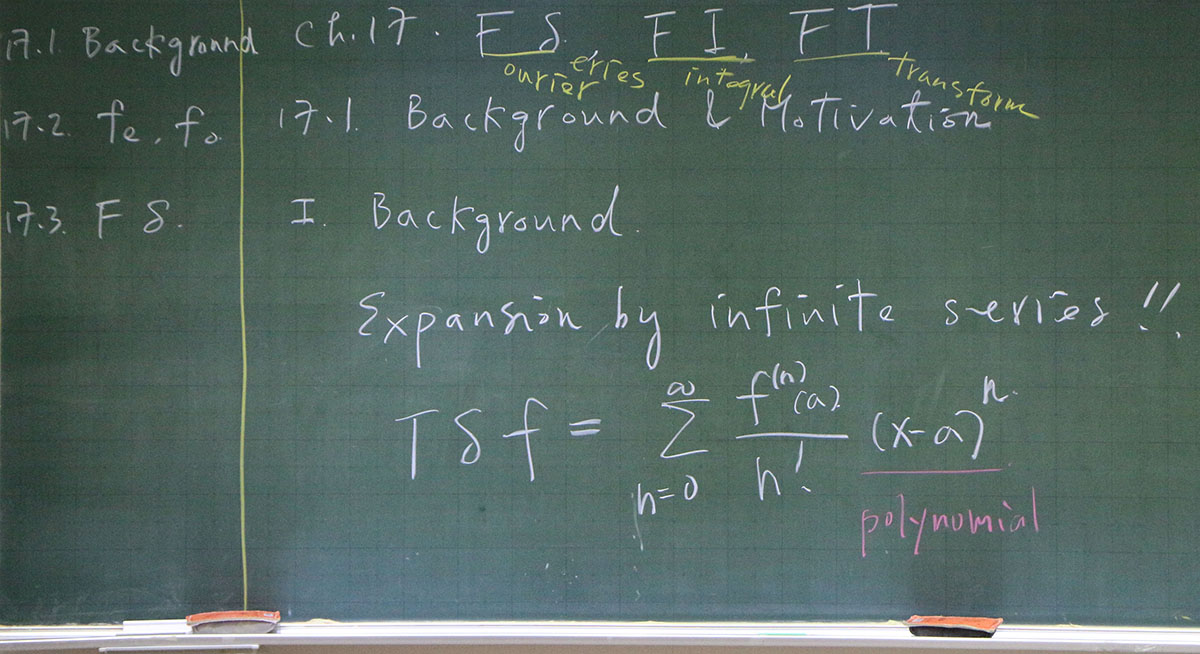 17.1. Background
17.2. fe, fo
17.3. F S.
Ch.17. F S. F I. F T
ourier eries integral transform
17.1. Background & Motivation
I. Background.
Expansion by infinite series !!
T S f = ∑_{n=0}^{∞} \frac{f^{(n)}(a)}{n!} (x-a)^n.
polynomial